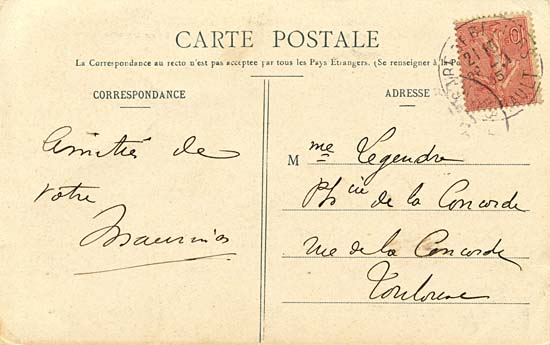 CARTE POSTALE
La Correspondance au recto n'est pas acceptée par tous les Pays Étrangers. (Se renseigner à la Po
CORRESPONDANCE
ADRESSE
Amitiés de
votre
Mme Legendre
Phcie de la Concorde
rue de la Concorde
Toulouse
10
HÉRAULT